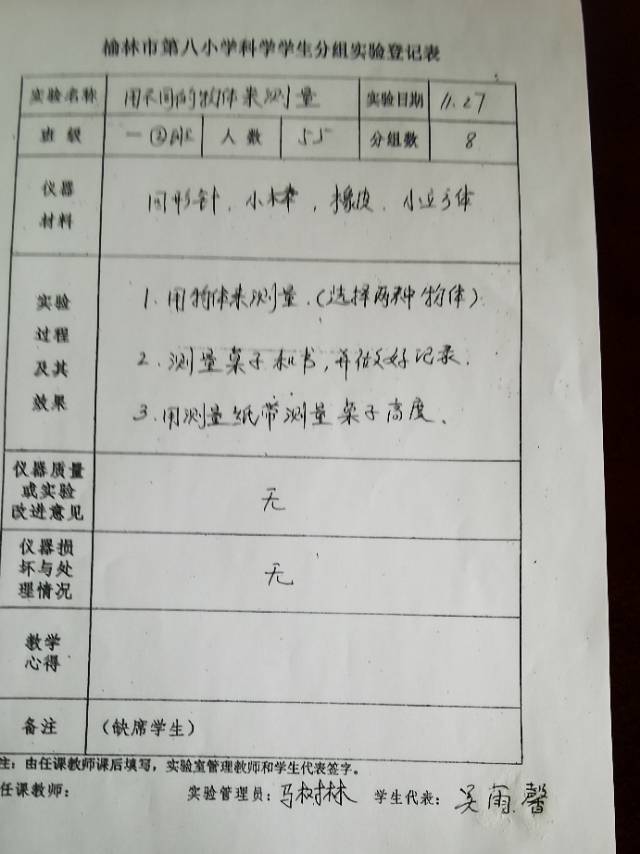 榆林市第八小学科学学生分组实验登记表
实验名称 用不同的物体来测量 实验日期 11.27
班级 一②班 人数 55 分组数 8
仪器
材料
回形针、小棒,橡皮、小立方体
实验
过程
及其
效果
1.用物体来测量.(选择两种物体)
2.测量桌子和书,并做好记录.
3.用测量纸带测量桌子高度.
仪器质量
或实验
改进意见
无
仪器损
坏与处
理情况
无
教学
心得
备注 (缺席学生)
注:由任课教师课后填写,实验室管理教师和学生代表签字。
任课教师: 实验管理员:马树林 学生代表:吴雨馨